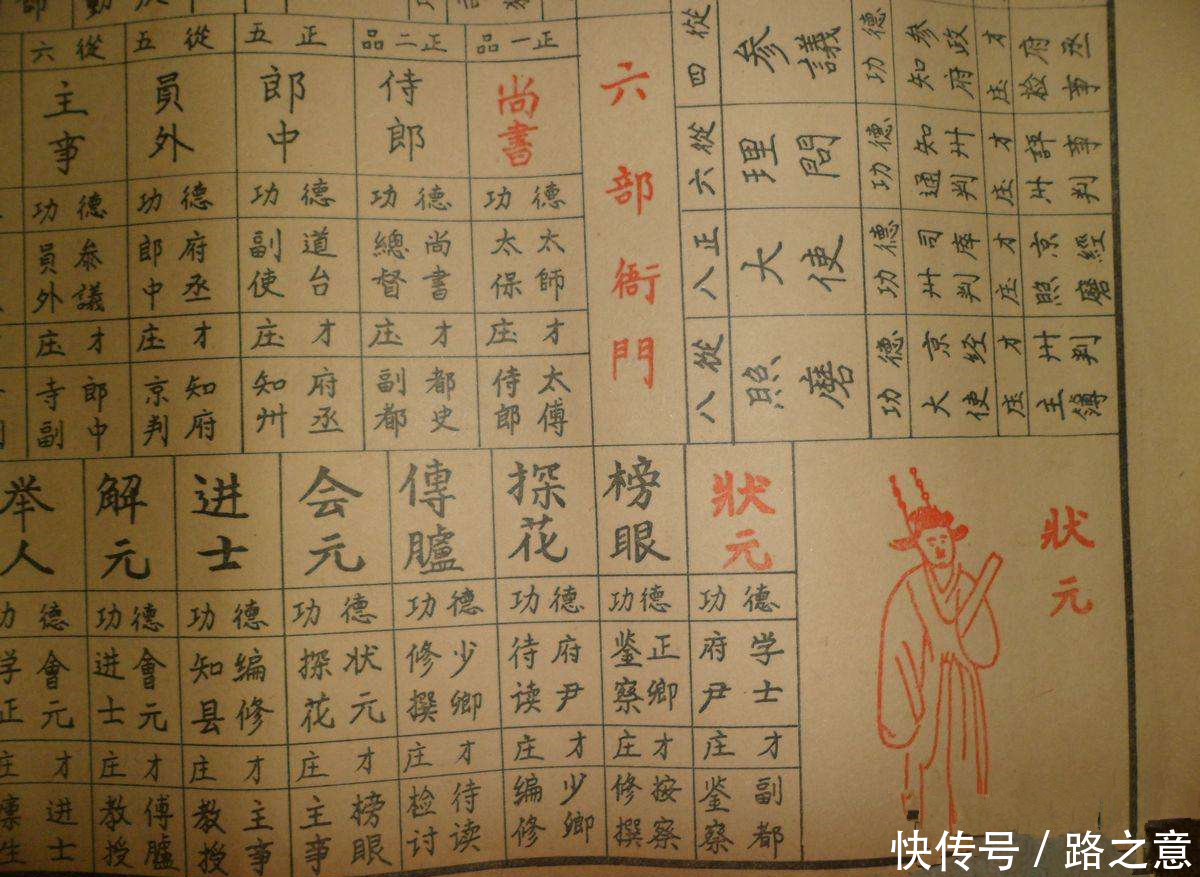 六部衙門
正一品
尚書
德功
太師
太保
才庄
太傅
侍郎
正二品
侍郎
德功
尚書
總督
才庄
都史
副都
正五
郎中
德功
道台
副使
才庄
府丞
知州
從五
員外
德功
府丞
郎中
才庄
知府
京判
從六
主事
德功
叅議
員外
才庄
郎中
寺副
從四
參議
德功
參政
知府
才庄
府丞
檢事
從六
理問
德功
知州
通判
才庄
評事
州判
正八
大使
德功
司庫
州判
才庄
京經
照磨
從八
照磨
德功
京经
大使
才庄
州判
主簿
狀元
狀元
德功
学士
府尹
才庄
副都
鉴察
榜眼
德功
正卿
鉴察
才庄
按察
修撰
探花
德功
府尹
待读
才庄
少卿
编修
傳臚
德功
少卿
修撰
才庄
待读
检讨
会元
德功
狀元
探花
才庄
榜眼
主事
进士
德功
编修
知县
才庄
主事
教授
解元
德功
會元
进士
才庄
傅臚
教授
举人
德功
會元
学正
才庄
进士
快传号 / 路之意